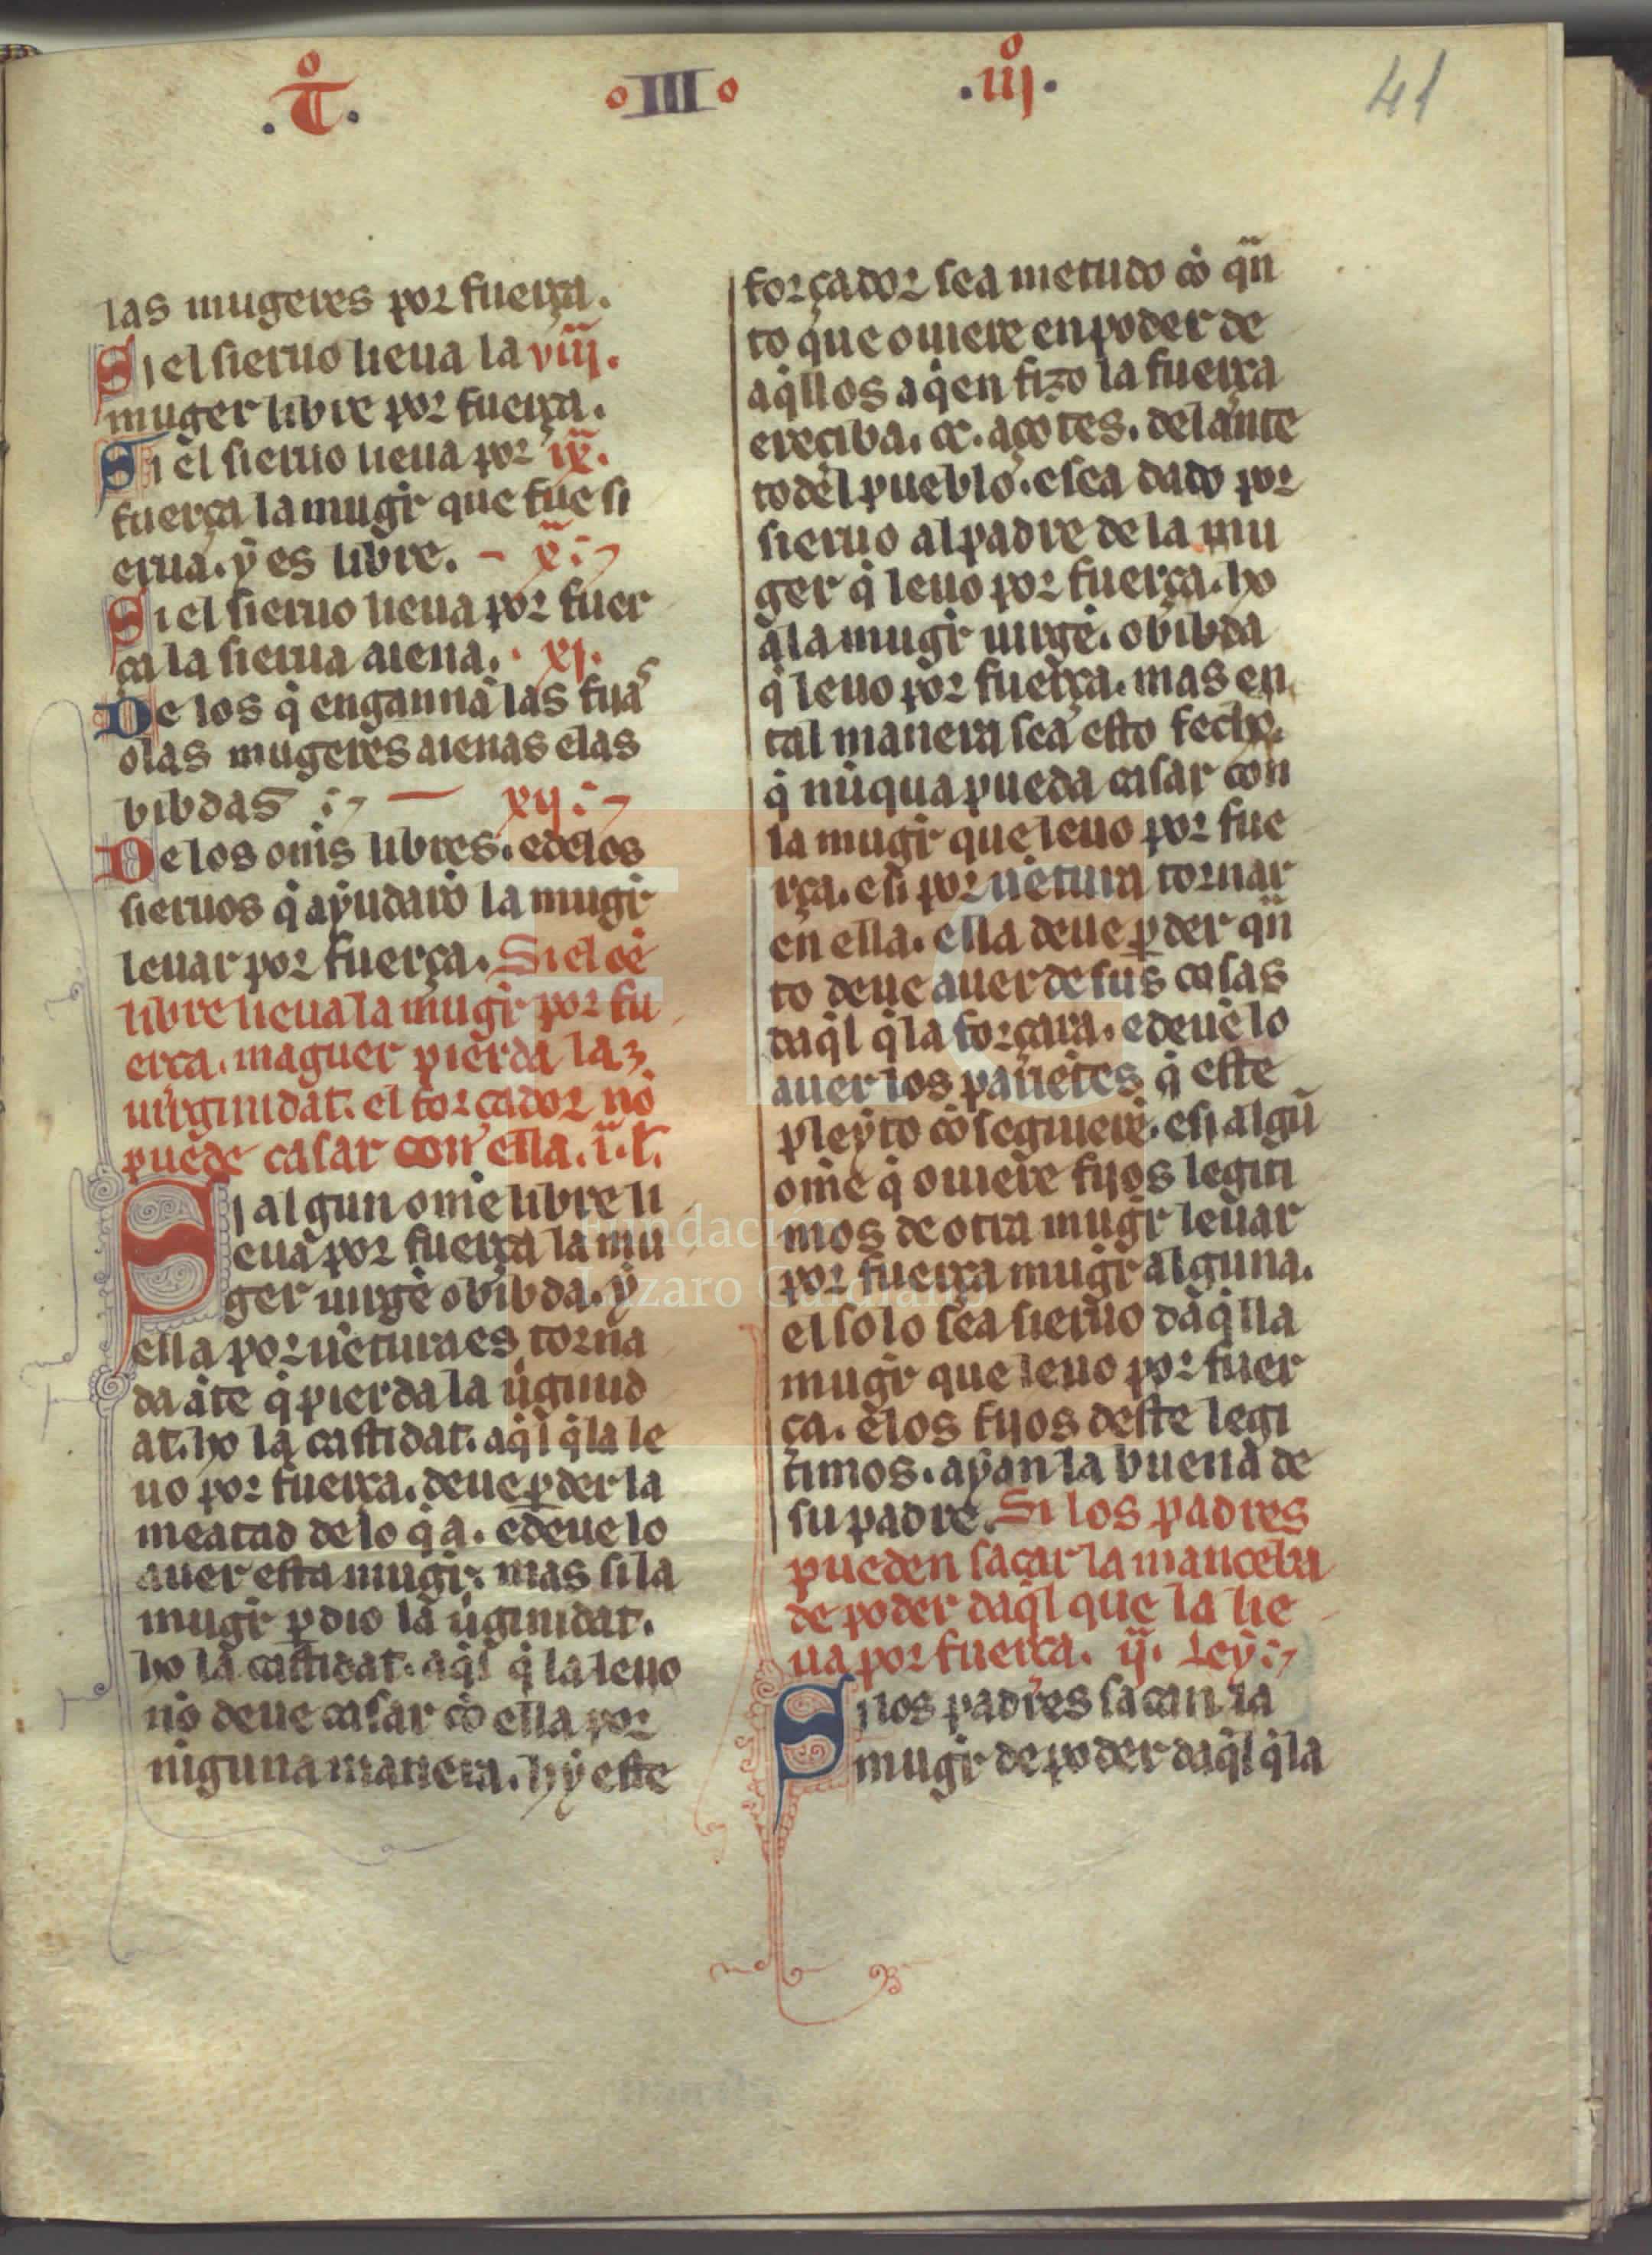 .t̄º. º III º .iijº. 41
las mugeres por fuerça.
Si el sieruo lieua la viij.
muger libre por fuerça.
Si el sieruo lieua por ix.
fuerça la mugr̄ que fue si
erua. ẏ es libre. x.
Si el sieruo lieua por fuer
ça la sierua aiena. xj.
De los q̇ engannā las fijas
o las mugeres aienas e las
bibdas xij
De los om̄s libres. e de los
sieruos q̇ aẏudarō la mugr̄
leuar por fuerça. Si el oē
libre lieua la mugr̄ por fu
erça. maguer pierda la
uirginidat. el forçador nō
puede casar con ella. i. l̄.
Si algun ome libre li
eua por fuerça la mu
ger uirgē o bibda. ẏ
ella por uētura es torna
da āte q̇ pierda la ūginid
at. ho la castidat. aq̇l q̇ la le
uo por fuerça. deue ꝑder la
meatad de lo q̇ a. e deue lo
auer esta mugr̄. mas si la
mugr̄ ꝑdio la ūginidat.
ho la castidat. aq̇l q̇ la leuo
nō deue casar cō ella por
niguna manera. hẏ este
forçador sea metudo cō qn̄
to que ouiere en poder de
aq̇llos a q̇en fizo la fuerça
e reciba. cc. açotes. delante
todel pueblo. e sea dado por
sieruo al padre de la mu
ger q̇ leuo por fuerça. ho
a la mugr̄ uirgē. o bibda
q̇ leuo por fuerça. mas en
tal manera sea esto fecho.
q̇ nūqua pueda casar con
la mugr̄ que leuo por fue
rça. e si por uētura tornar
en ella. ella deue ꝑder qn̄
to deue auer de sus cosas
daq̇l q̇ la forçara. e deue lo
auer los pariētes q̇ este
pleẏto cōseguierē. e si algū
ome q̇ ouiere fijos legiti
mos de otra mugr̄ leuar
por fuerça mugr̄ alguna.
el solo sea sieruo daq̇lla
mugr̄ que leuo por fuer
ça. e los fijos deste legi
timos. aẏan la buena de
su padre. Si los padres
pueden sacar la manceba
de poder daq̇l que la lie
ua por fuerça. ij. Leẏ
Si los padres sacan la
mugr̄ de poder daq̇l q̇ la
Fundación
Lázaro Galdiano